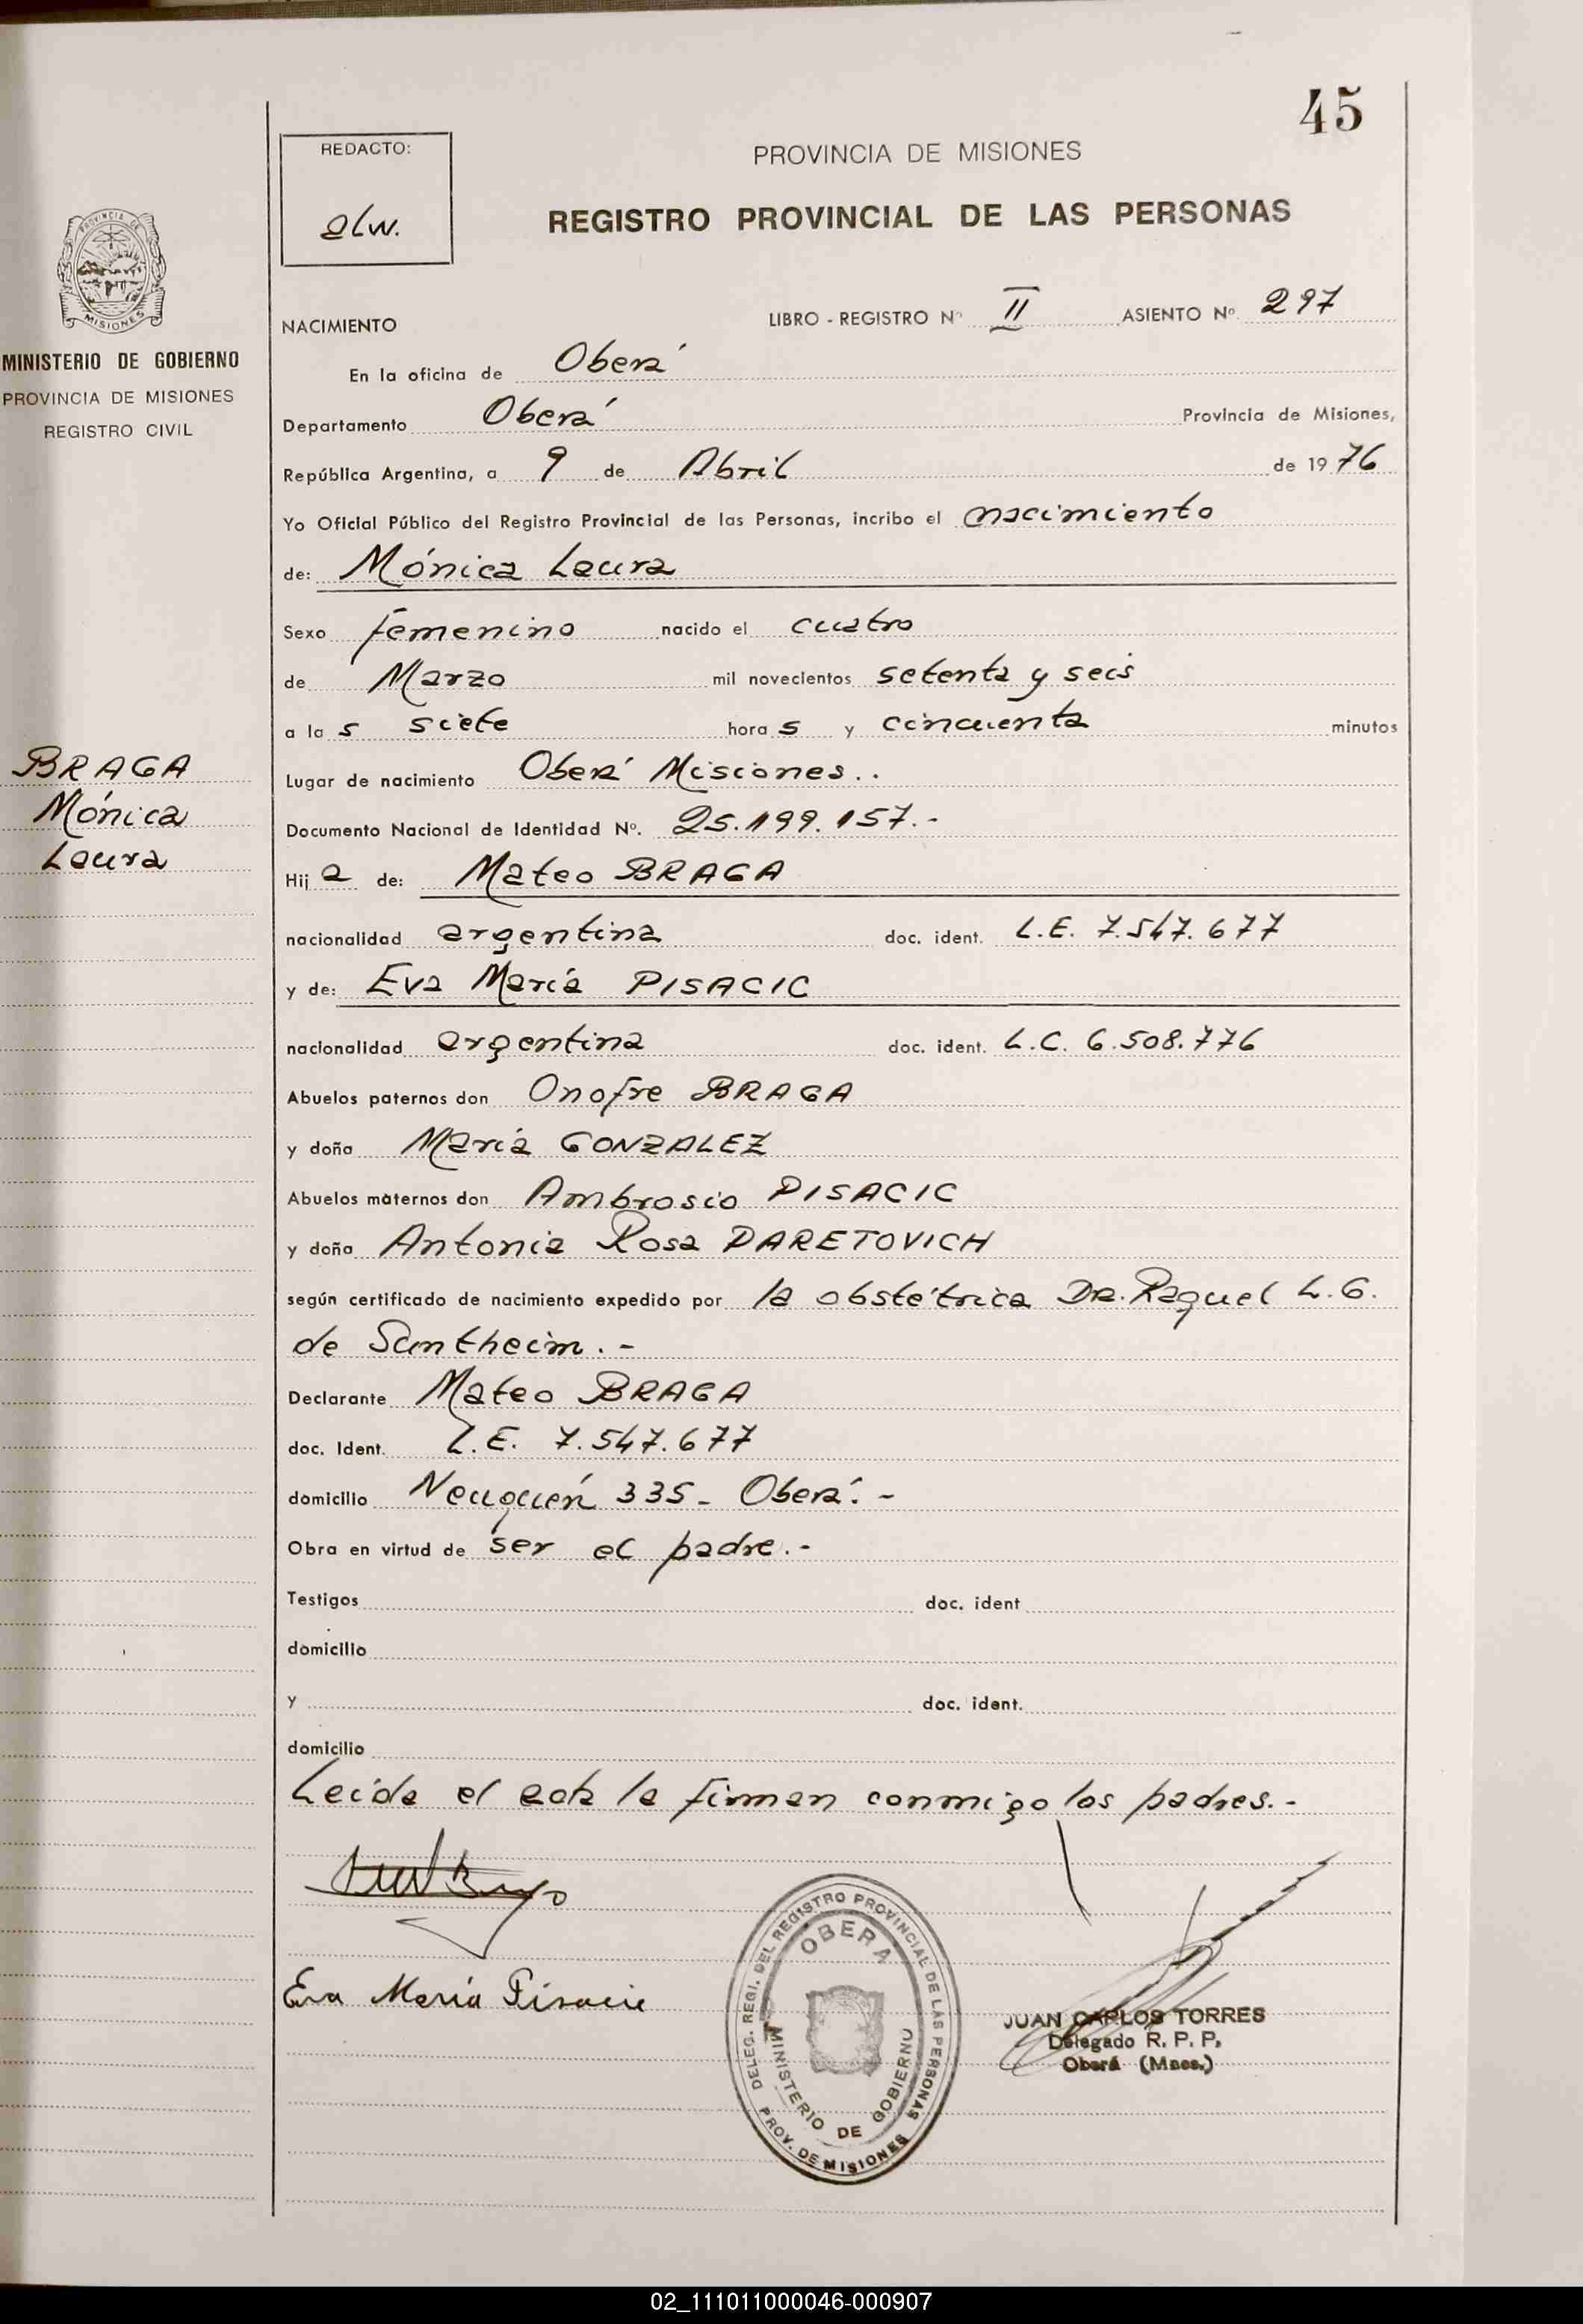 45
REDACTO:
PROVINCIA DE MISIONES
REGISTRO PROVINCIAL DE LAS PERSONAS
PROVINCIA DE
MISIONES
MINISTERIO DE GOBIERNO
PROVINCIA DE MISIONES
REGISTRO CIVIL
NACIMIENTO LIBRO - REGISTRO Nº II ASIENTO Nº 297
En la oficina de Oberá
Departamento Oberá Provincia de Misiones,
República Argentina, a 9 de Abril de 1976
Yo Oficial Público del Registro Provincial de las Personas, incribo el nacimiento
de: Mónica Laura
Sexo femenino nacido el cuatro
de Marzo mil novecientos setenta y seis
a las siete horas y cincuenta minutos
BRAGA
Mónica
Laura
Lugar de nacimiento Oberá Misiones..
Documento Nacional de Identidad Nº. 25.199.157.-
Hija de: Mateo BRAGA
nacionalidad argentina doc. ident. L.E. 7.547.677
y de: Eva María PISACIC
nacionalidad argentina doc. ident. L.C. 6.508.776
Abuelos paternos don Onofre BRAGA
y doña María GONZALEZ
Abuelos maternos don Ambrosio PISACIC
y doña Antonia Rosa PARETOVICH
según certificado de nacimiento expedido por la obstétrica Dra. Raquel L.G.
de Suntheim.-
Declarante Mateo BRAGA
doc. Ident. L.E. 7.547.677
domicilio Neuquén 335- Oberá.-
Obra en virtud de ser el padre.-
Testigos doc. ident
domicilio
y doc. ident.
domicilio
Leida el acta la firman conmigo los padres.-
Eva María Pisacic
DELEG. REGI. DEL REGISTRO PROVINCIAL DE LAS PERSONAS
OBERA
MINISTERIO DE GOBIERNO
PROV. DE MISIONES
JUAN CARLOS TORRES
Delegado R. P. P.
Oberá (Mnes.)
02_111011000046-000907